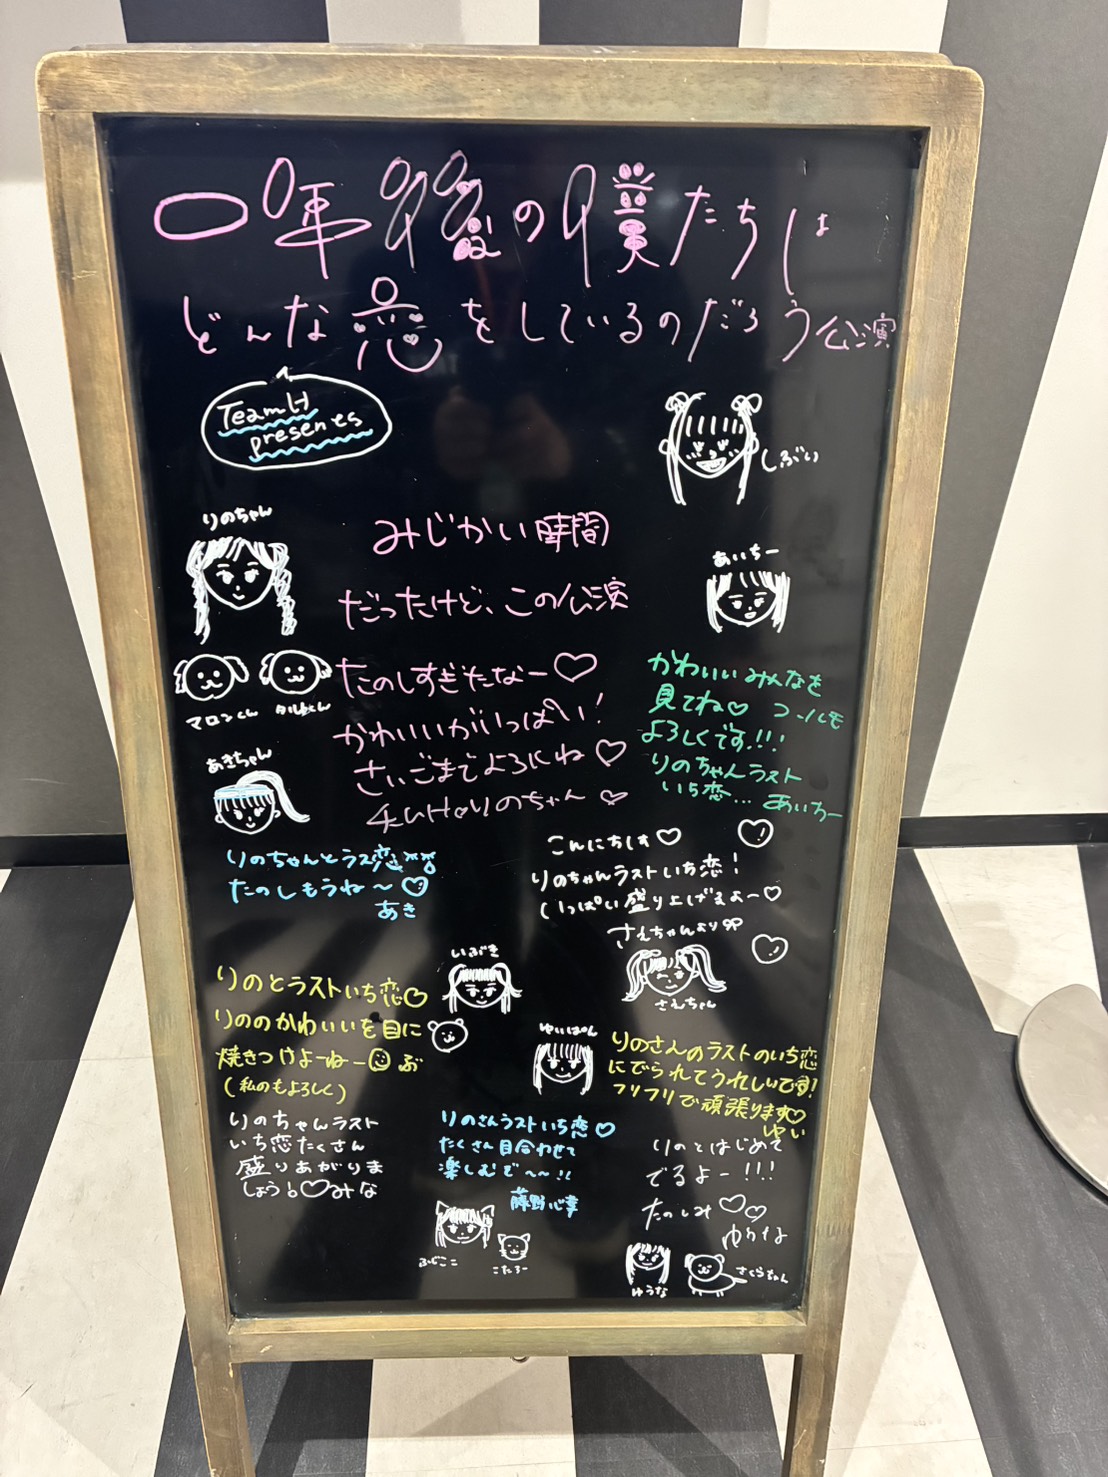 一年後の僕たちは
どんな恋をしているのだろう公演
TeamH
presents
しぶい
りのちゃん
みじかい時間
だったけど、この公演
たのしすぎたなー♡
かわいいがいっぱい!
さいごまでよろしくね♡
りのちゃん♡
マロンくん
あいちー
かわいいみんなを
見てね♡ コールも
よろしくです!!!
りのちゃんラスト
いち恋... あいちー
あきちゃん
りのちゃんとラス恋
たのしもうね〜♡
あき
こんにちは♡
りのちゃんラストいち恋!
いっぱい盛り上げるよー♡
さえちゃんより
さえちゃん
いぶき
りのとラストいち恋♡
りののかわいいを目に
焼きつけよーねー ぶ
(私のもよろしく)
ゆいぱん
りのさんのラストのいち恋
にでられてうれしいです!
フリフリで頑張ります♡
ゆい
りのちゃんラスト
いち恋たくさん
盛りあがりま
しょう!♡みな
りのさんラストいち恋♡
たくさん目合わせて
楽しむぞ〜〜!!
藤野心葉
ふじここ
こたろー
りのとはじめて
でるよー!!!
たのしみ♡♡
ゆうな
ゆうな
さくらちゃん